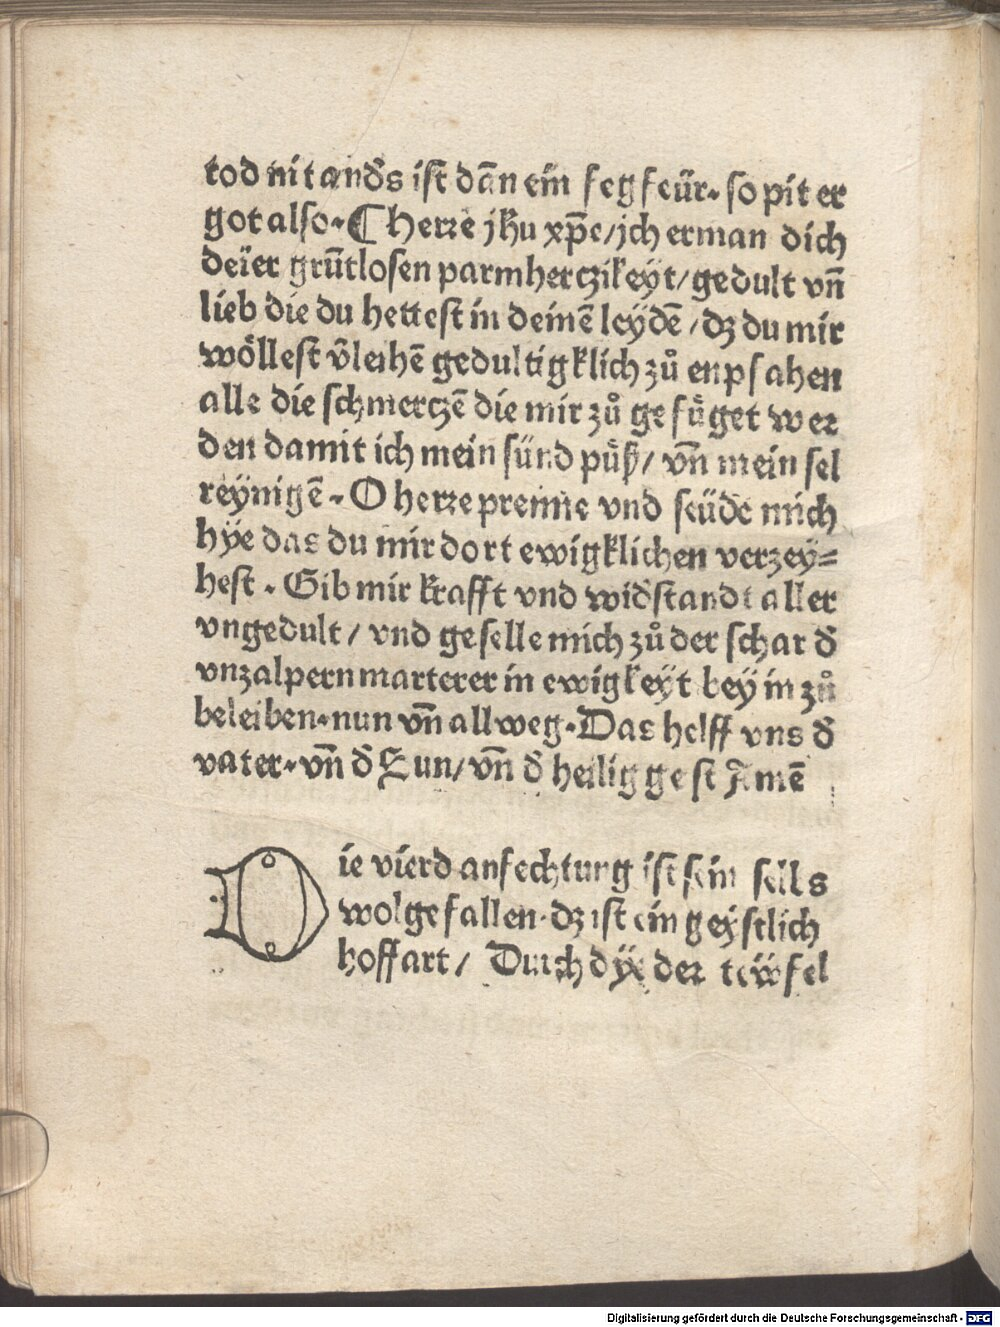 tod nit anđs ist dañ ein fegfeür· so pit er
got also·¶ herre jħu xp̄e/jch erman dich
deīer grūtlosen parmherczikeyt/gedult vñ
lieb die du hettest in deinē leydē/dz du mir
wöllest v̄leihē gedultigklich zů enpfahen
alle die schmerczē die mir zů gefüget wer
den damit ich mein sünd püß/ vñ mein sel
reynigē· O herre prenne vnd seüde mich
hye das du mir dort ewigklichen verzey⸗
hest· Gib mir krafft vnd widstandt aller
vngedult/ vnd geselle mich zů der schar đ
vnzalpern marterer in ewigkeyt bey in zů
beleiben·nun vñ allweg·Das helff vns đ
vater·vñ đ Sun/vñ đ heilig gest Amē
Die vierd anfechtung ist sein selbs
wolgefallen·dz ist ein geystlich
hoffart/ Durch dye der tewfel
Digitalisierung gefördert durch die Deutsche Forschungsgemeinschaft - DFG